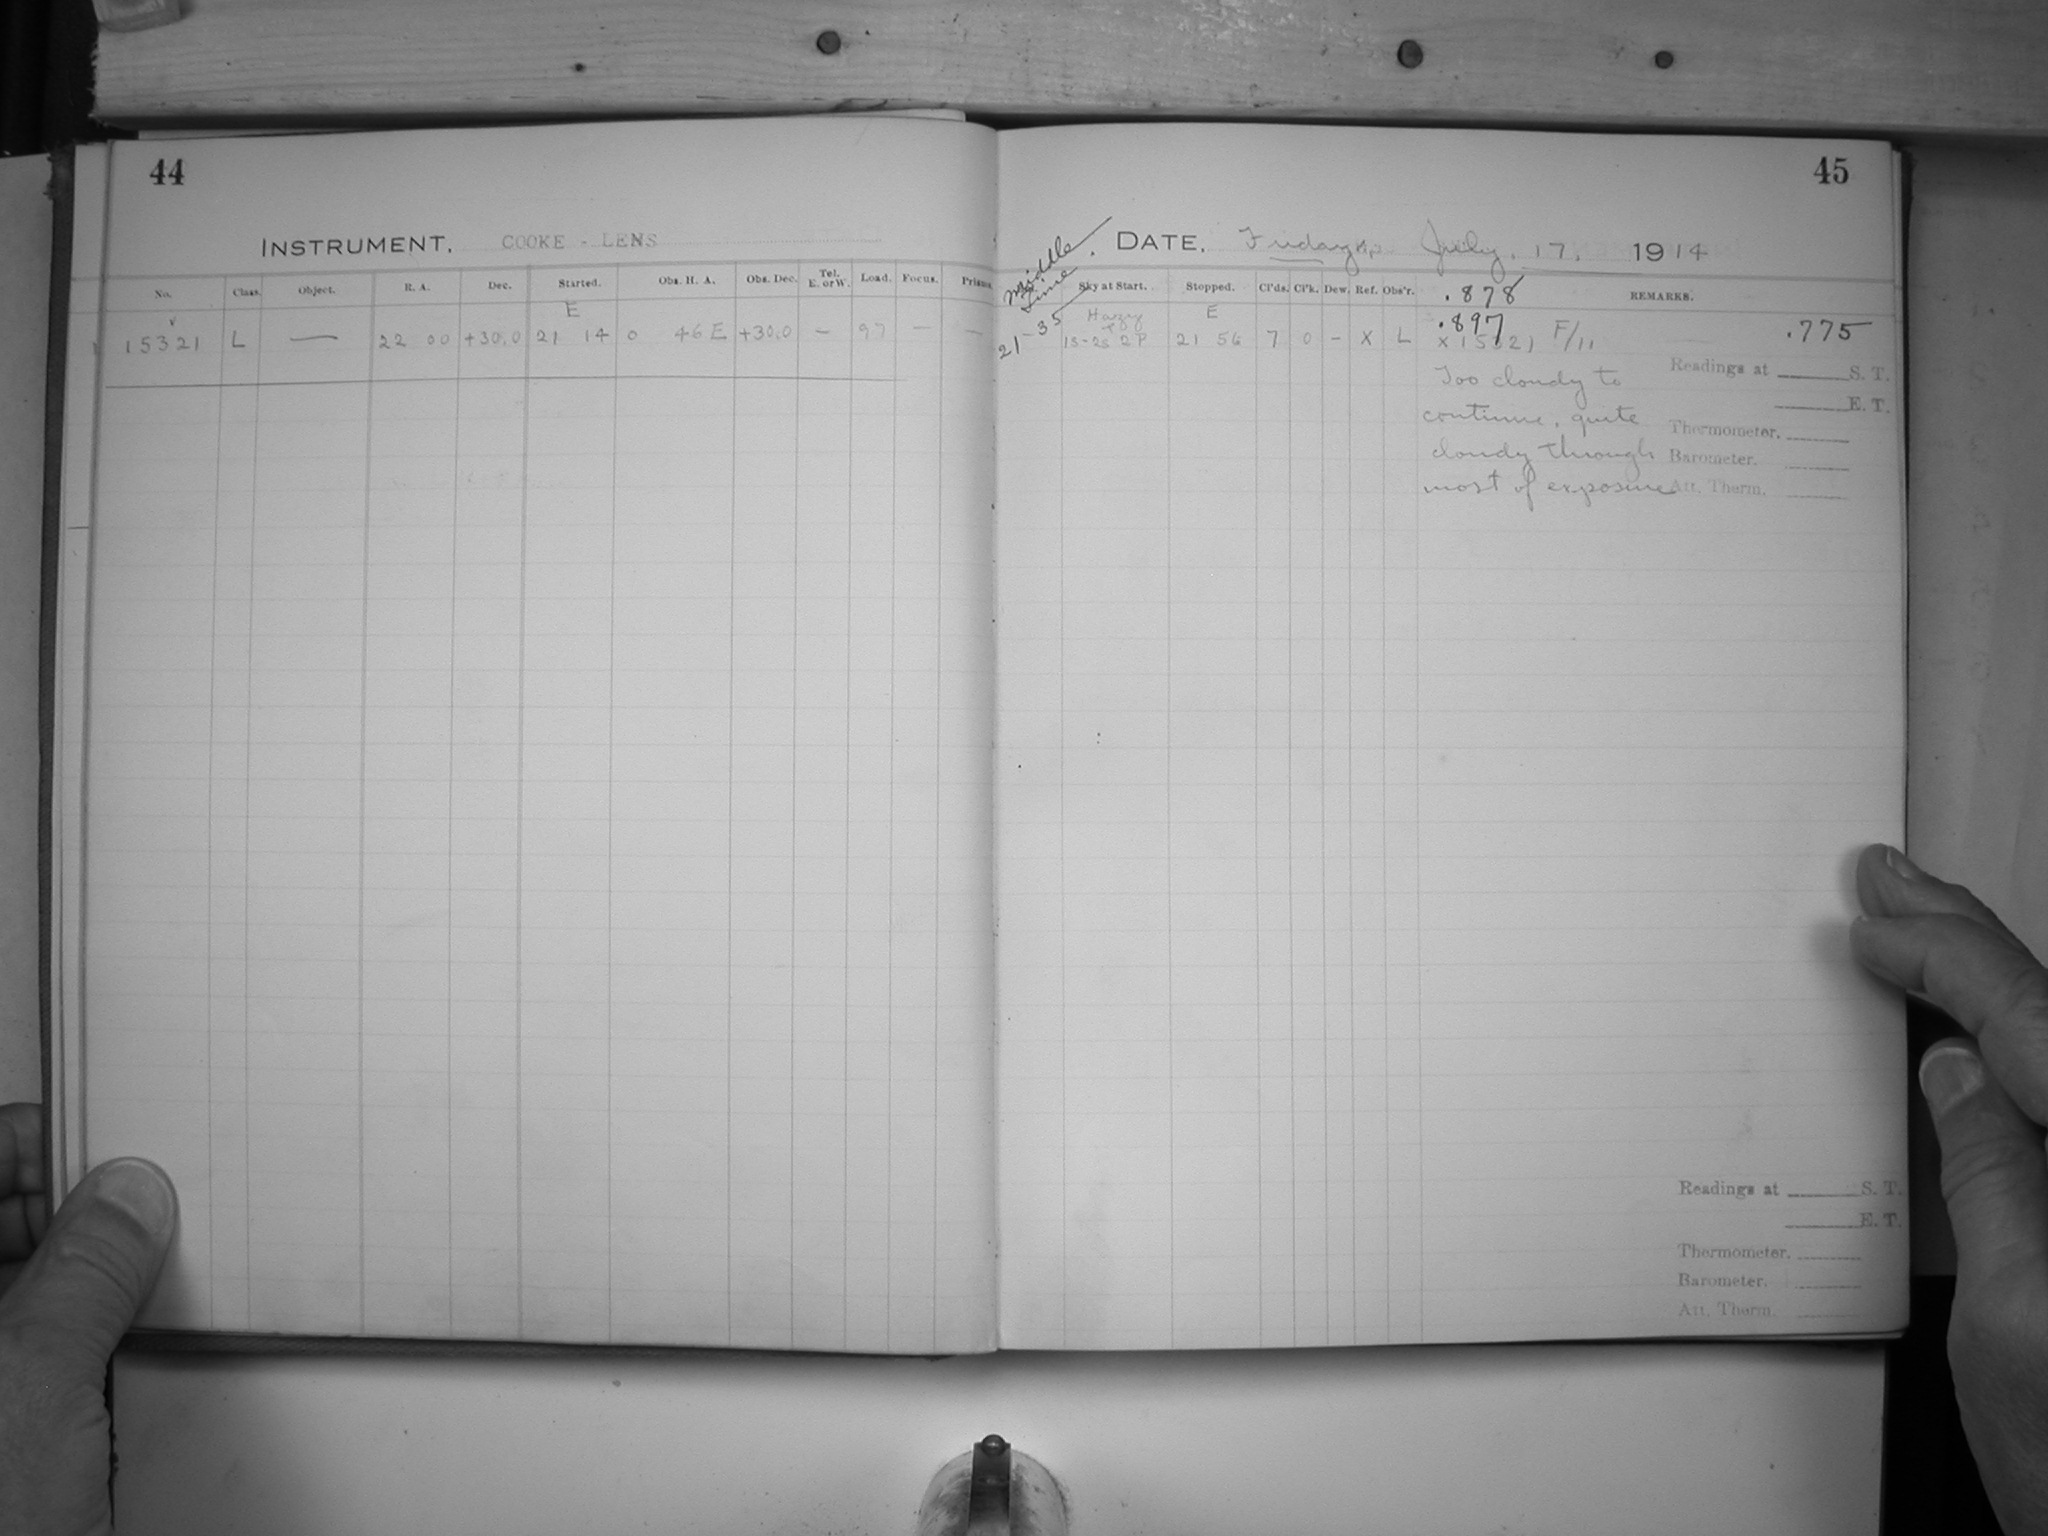 44
INSTRUMENT. COOKE - LENS
No. Class. Object. R. A. Dec. Started. Obs. H. A. Obs. Dec. Tel. E. or W. Load. Focus. Prisms.
E
15321 L — 22 00 +30.0 21 14 0 46 E +30.0 — 97 — —
45
DATE. Friday July. 17. 1914
Middle
Time
21-35
Sky at Start. Stopped. Cl'ds. Cl'k. Dew. Ref. Obs'r. .878 REMARKS.
Hazy E .897 .775
1s-2s 2P 21 56 7 0 - X L x 15321 F/11
Too cloudy to
continue, quite
cloudy through
most of exposure
Readings at S. T.
E. T.
Thermometer.
Barometer.
Att. Therm.
Readings at S. T.
E. T.
Thermometer.
Barometer.
Att. Therm.